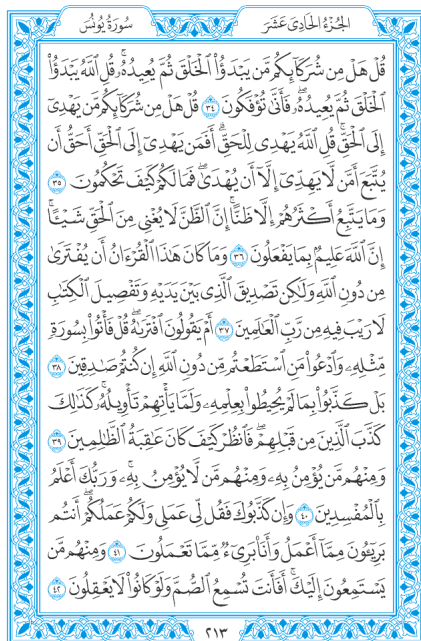 الجُزْءُ الحَادِي عَشَرَ
سُورَةُ يُونُسَ
قُلْ هَلْ مِن شُرَكَآئِكُم مَّن يَبْدَؤُاْ ٱلْخَلْقَ ثُمَّ يُعِيدُهُۥ ۚ قُلِ ٱللَّهُ يَبْدَؤُاْ
ٱلْخَلْقَ ثُمَّ يُعِيدُهُۥ ۖ فَأَنَّىٰ تُؤْفَكُونَ ٣٤ قُلْ هَلْ مِن شُرَكَآئِكُم مَّن يَهْدِىٓ
إِلَى ٱلْحَقِّ ۚ قُلِ ٱللَّهُ يَهْدِى لِلْحَقِّ ۗ أَفَمَن يَهْدِىٓ إِلَى ٱلْحَقِّ أَحَقُّ أَن
يُتَّبَعَ أَمَّن لَّا يَهِدِّىٓ إِلَّآ أَن يُهْدَىٰ ۖ فَمَا لَكُمْ كَيْفَ تَحْكُمُونَ ٣٥
وَمَا يَتَّبِعُ أَكْثَرُهُمْ إِلَّا ظَنًّا ۚ إِنَّ ٱلظَّنَّ لَا يُغْنِى مِنَ ٱلْحَقِّ شَيْـًٔا ۚ
إِنَّ ٱللَّهَ عَلِيمٌۢ بِمَا يَفْعَلُونَ ٣٦ وَمَا كَانَ هَٰذَا ٱلْقُرْءَانُ أَن يُفْتَرَىٰ
مِن دُونِ ٱللَّهِ وَلَٰكِن تَصْدِيقَ ٱلَّذِى بَيْنَ يَدَيْهِ وَتَفْصِيلَ ٱلْكِتَٰبِ
لَا رَيْبَ فِيهِ مِن رَّبِّ ٱلْعَٰلَمِينَ ٣٧ أَمْ يَقُولُونَ ٱفْتَرَىٰهُ ۖ قُلْ فَأْتُواْ بِسُورَةٍ
مِّثْلِهِۦ وَٱدْعُواْ مَنِ ٱسْتَطَعْتُم مِّن دُونِ ٱللَّهِ إِن كُنتُمْ صَٰدِقِينَ ٣٨
بَلْ كَذَّبُواْ بِمَا لَمْ يُحِيطُواْ بِعِلْمِهِۦ وَلَمَّا يَأْتِهِمْ تَأْوِيلُهُۥ ۚ كَذَٰلِكَ
كَذَّبَ ٱلَّذِينَ مِن قَبْلِهِمْ ۖ فَٱنظُرْ كَيْفَ كَانَ عَٰقِبَةُ ٱلظَّٰلِمِينَ ٣٩
وَمِنْهُم مَّن يُؤْمِنُ بِهِۦ وَمِنْهُم مَّن لَّا يُؤْمِنُ بِهِۦ ۚ وَرَبُّكَ أَعْلَمُ
بِٱلْمُفْسِدِينَ ٤٠ وَإِن كَذَّبُوكَ فَقُل لِّى عَمَلِى وَلَكُمْ عَمَلُكُمْ ۖ أَنتُم
بَرِيٓـُٔونَ مِمَّآ أَعْمَلُ وَأَنَا۠ بَرِىٓءٌ مِّمَّا تَعْمَلُونَ ٤١ وَمِنْهُم مَّن
يَسْتَمِعُونَ إِلَيْكَ ۚ أَفَأَنتَ تُسْمِعُ ٱلصُّمَّ وَلَوْ كَانُواْ لَا يَعْقِلُونَ ٤٢
٢١٣